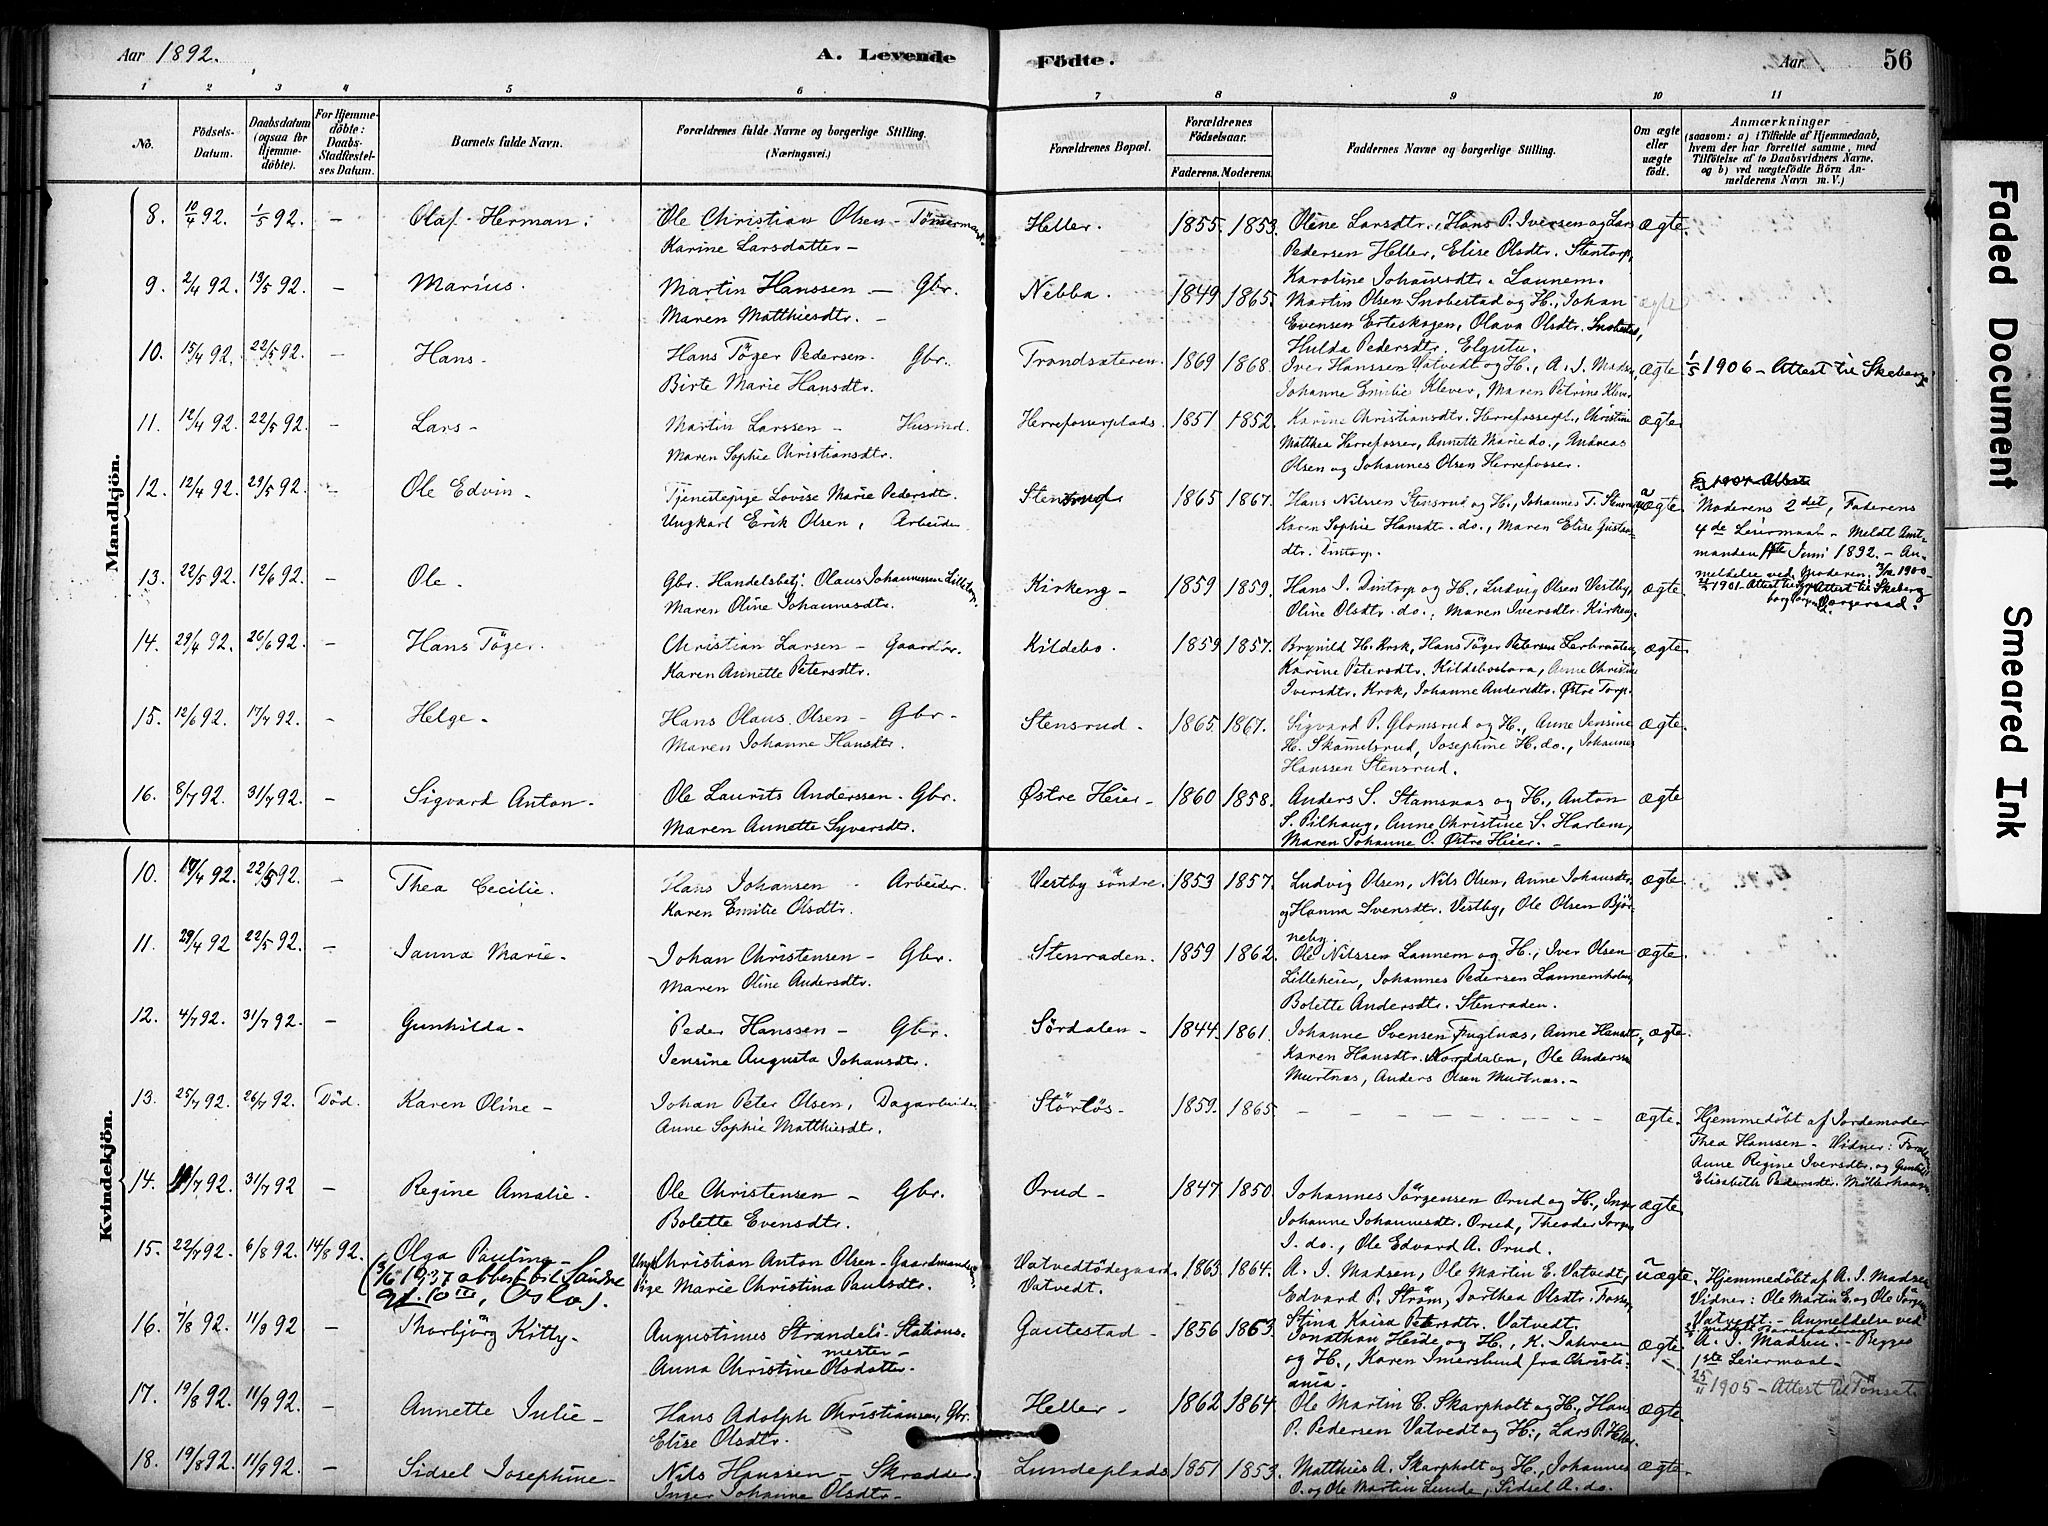 Aar 1892.
A. Levende
Födte.
Aar
56
1 2 3 4 5 6 7 8 9 10 11
No.
Födsels-Datum.
Daabsdatum (ogsaa for Hjemmedöbte).
For Hjemmedöbte: Daabs-Stadfæstelses Datum.
Barnets fulde Navn.
Forældrenes fulde Navne og borgerlige Stilling. (Næringsvei.)
Forældrenes Bopæl.
Forældrenes Födselsaar.
Faderens. Moderens.
Faddernes Navne og borgerlige Stilling.
Om ægte eller uægte födt.
Anmærkninger
(saasom: a) i Tilfælde af Hjemmedaab, hvem der har forrettet samme, med Tilföielse af to Daabsvidners Navne, og b) ved uægtefödte Börn Anmelderens Navn m. V.)
Mandkjön.
8. 10/4 92. 1/5 92. – Olaf Herman. Ole Christian Olsen – Tömmermand. Heller. 1855. 1853. Oline Larsdtr., Hans P. Iversen og Lars ægte.
Karine Larsdatter – Pedersen Heller, Elise Olsdtr. Stentorp,
Karoline Johannesdtr. Launem.
9. 2/4 92. 13/5 92. – Marius. Martin Hanssen – Gbr. Nebba. 1849 1865. Martin Olsen Snobestad og H., Johan ægte
Maren Matthiesdtr. – Evensen Erteskogen, Olava Olsdtr. Snobestad,
Hulda Pedersdtr. Elgutu.
10. 15/4 92. 22/5 92. – Hans – Hans Töger Pedersen. Gbr. Trandsæteren. 1869 1868. Iver Hanssen Vatvedt og H., A. I. Madsen, ægte. 1/5 1906 – Attest til Skeberg
Birte Marie Hansdtr. Johanne Emilie Klever, Maren Petrine Klever
11. 12/4 92. 22/5 92. – Lars – Martin Larssen – Husmd. Herrefosserplads. 1851 1852. Karine Christiansdtr. Herrefosserpl., Christine ægte.
Maren Sophie Christiansdtr. Matthea Herrefosser, Annette Marie do., Andreas
Olsen og Johannes Olsen Herrefosser.
12. 12/4 92. 29/5 92. – Ole Edvin – Tjenestepige Lovise Marie Pedersdtr. Stensrud 1865 1867. Hans Nilssen Stensrud og H., Johannes T. Stensrud, uægte.
Ungkarl Erik Olsen, Arbeider Karen Sophie Hansdtr. do., Maren Elise Gustavsdtr. Dintorp.
Moderens 2det, Faderens
4de Leiermaal – Meldt Amtmanden 1ste Juni 1892. – Anmeldelse ved Moderen.
13. 22/5 92. 12/6 92. – Ole. Gbr. Handelsbetj. Olaus Johannessen Lilletorp. Kirkeng – 1859 1859. Hans I. Dintorp og H., Ludvig Olsen Vestby, ægte.
Maren Oline Johannesdtr. Oline Olsdtr. do., Maren Iversdtr. Kirkeng.
14. 29/4 92. 26/6 92. – Hans Töger. Christian Larsen – Gaardbr. Kildebo. 1859 1857. Brynild H. Krok, Hans Töger Petersen Lerbraaten, ægte.
Karen Annette Petersdtr. Karine Petersdtr. Kildebosbraa, Anne Christine
Iversdtr. Krok, Johanne Andersdtr. Østre Torp.
15. 12/6 92. 17/7 92. – Helge – Hans Olaus Olsen – Gbr. – Stensrud – 1865. 1867. Sigvard P. Glomsrud og H., Anne Jensine ægte.
Maren Johanne Hansdtr. H. Skamelsrud, Josephine H. do., Johannes
Hanssen Stensrud.
16. 8/7 92. 31/7 92. – Sigvard Anton – Ole Laurits Anderssen – Gbr. Østre Heier – 1860 1858. Anders S. Stamsnas og H., Anton ægte
Maren Annette Syversdtr. S. Pilhaug, Anne Christine S. Harlem,
Maren Johanne O. Østre Heier. –
Kvindekjön.
10. 17/4 92. 22/5 92. – Thea Cecilie. Hans Johansen – Arbeider. Vestby söndre. 1853 1857. Ludvig Olsen, Nils Olsen, Anne Johansdtr. ægte.
Karen Emilie Olsdtr. og Hanna Svensdtr. Vestby, Ole Olsen Björneby.
11. 29/4 92 22/5 92. – Janna Marie – Johan Christensen – Gbr. Stenraden. 1859 1862. Ole Nilssen Lannem og H., Iver Olsen ægte.
Maren Oline Andersdtr. Lilleheier, Johannes Pedersen Lannemholm,
Bolette Andersdtr. Stenraden.
12. 4/7 92. 31/7 92. – Gunhilda – Peder Hanssen – Gbr. Sördalen – 1844 1861. Johanne Svensen Fuglnæs, Anne Hansdtr., ægte.
Jensine Augusta Johansdtr. Karen Hansdtr. Norddalen, Ole Andersen
Murtnæs, Anders Olsen Murtnæs. –
13. 25/7 92. 26/7 92. Död. Karen Oline – Johan Peter Olsen, Dagarbeider Störlös – 1859. 1865 – ægte. Hjemmedöbt af Jordemoder
Anne Sophie Matthiesdtr. Thea Hanssen – Vidner:
Anne Regine Iversdtr. og Gunhild
Elisabeth Pedersdtr. Möllerhaugen
14. 92. 31/7 92 – Regine Amalie – Ole Christensen – Gbr. Orud – 1847 1850. Johannes Jörgensen Orud og H., Inger ægte
Bolette Evensdtr. Johanne Johannesdtr. Orud, Theodor Jörgen
I. do., Ole Edvard A. Orud.
15. 22/7 92. 6/8 92. 14/8 92. Olga Pauline – Ungk. Christian Anton Olsen – Gaardmandssøn, Vatvedtödegaard 1863 1864. A. I. Madsen, Ole Martin E. Vatvedt, uægte. Hjemmedöbt af A. I. Madsen
(3/6 1937 attest til Søndre
gt. 10 III, Oslo).
Pige Marie Christina Paulsdtr. Vatvedt. Edvard P. Ström, Dorthea Olsdtr. Fosser, Vidner: Ole Martin E. og Ole Jörgen
Stina Kaisa Petersdtr. Vatvedt. Vatvedt – Anmeldelse ved
A. I. Madsen – Begges
1ste Leiermaal –
16. 7/8 92. 11/9 92 – Thorbjörg Kitty – Augustinus Strandeli – Stationsmester – Gautestad – 1856 1863. Jonathan Heide og H., K. Jahren ægte.
Anna Christine Olsdatter. og H., Karen Imerslund fra Christiania.
25/11 1905 – Attest til Tönset.
17. 19/8 92. 11/9 92. – Annette Julie – Hans Adolph Christiansen, Gbr. Heller – 1862 1864. Ole Martin C. Skarpholt og H., Hans ægte.
Elise Olsdtr. P. Pedersen Vatvedt og H., Lars P. Heller.
18. 19/8 92. 11/9 92. – Sidsel Josephine – Nils Hanssen – Skrædder Lundeplads 1851 1853. Matthies A. Skarpholt og H., Johannes ægte.
Inger Johanne Olsdtr. – O. og Ole Martin Lunde, Sidsel A. do.
Faded Document
Smeared Ink